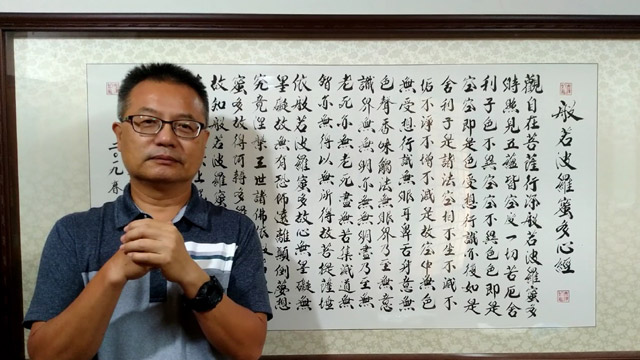 般若波羅蜜多心經
觀自在菩薩行深般若波羅蜜多
時照見五蘊皆空度一切苦厄舍
利子色不異空空不異色色即是
空空即是色受想行識亦復如是
舍利子是諸法空相不生不滅不
垢不淨不增不減是故空中無色
無受想行識無眼耳鼻舌身意無
色聲香味觸法無眼界乃至無意
識界無無明亦無無明盡乃至無
老死亦無老死盡無苦集滅道無
智亦無得以無所得故菩提薩埵
依般若波羅蜜多故心無罣礙無
罣礙故無有恐怖遠離顛倒夢想
究竟涅槃三世諸佛依
蜜多故得阿耨多
故知般若波羅蜜
二〇九春